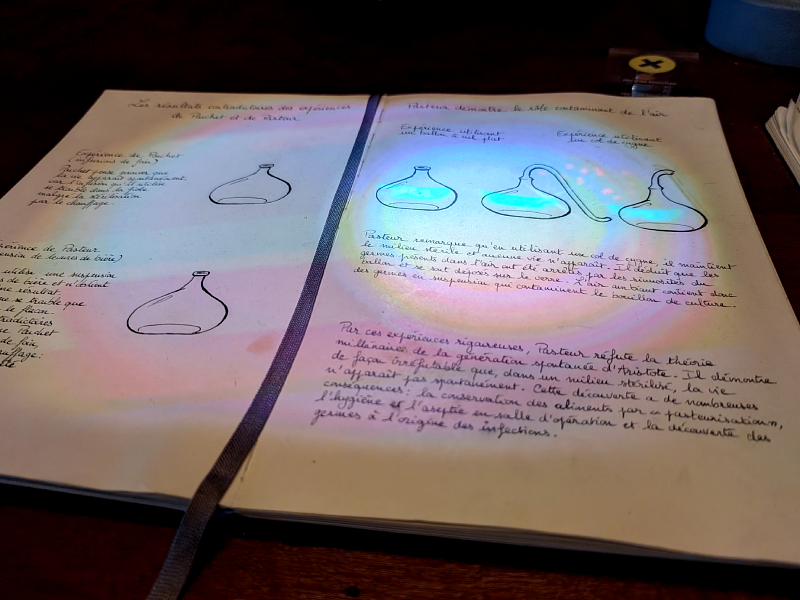 Les résultats contradictoires des expériences
de Pouchet et de Pasteur
Expérience de Pouchet
(infusions de foin)
Pouchet pense prouver que
la vie apparaît spontanément
car l'infusion qu'il utilise
se trouble dans la fiole
malgré la stérilisation
par le chauffage.
Expérience de Pasteur
(suspension de levures de bière)
utilise une suspension
de bière et n'obtient
résultat
ne se trouble que
le flacon
contradictoires
Pouchet
de foin,
chauffage:
Pasteur démontre le rôle contaminant de l'air
Expérience utilisant
un ballon à col plat
Expérience utilisant
un col de cygne
Pasteur remarque qu'en utilisant un col de cygne, il maintient
le milieu stérile et aucune vie n'apparaît. Il déduit que les
germes présents dans l'air ont été arrêtés par les sinuosités du
ballon et se sont déposés sur le verre. L'air ambiant contient donc
des germes en suspension qui contaminent le bouillon de culture.
Par ces expériences rigoureuses, Pasteur réfute la théorie
millénaire de la génération spontanée d'Aristote. Il démontre
de façon irréfutable que, dans un milieu stérilisé, la vie
n'apparaît pas spontanément. Cette découverte a de nombreuses
conséquences: la conservation des aliments par la pasteurisation,
l'hygiène et l'asepsie en salle d'opération et la découverte des
germes à l'origine des infections.